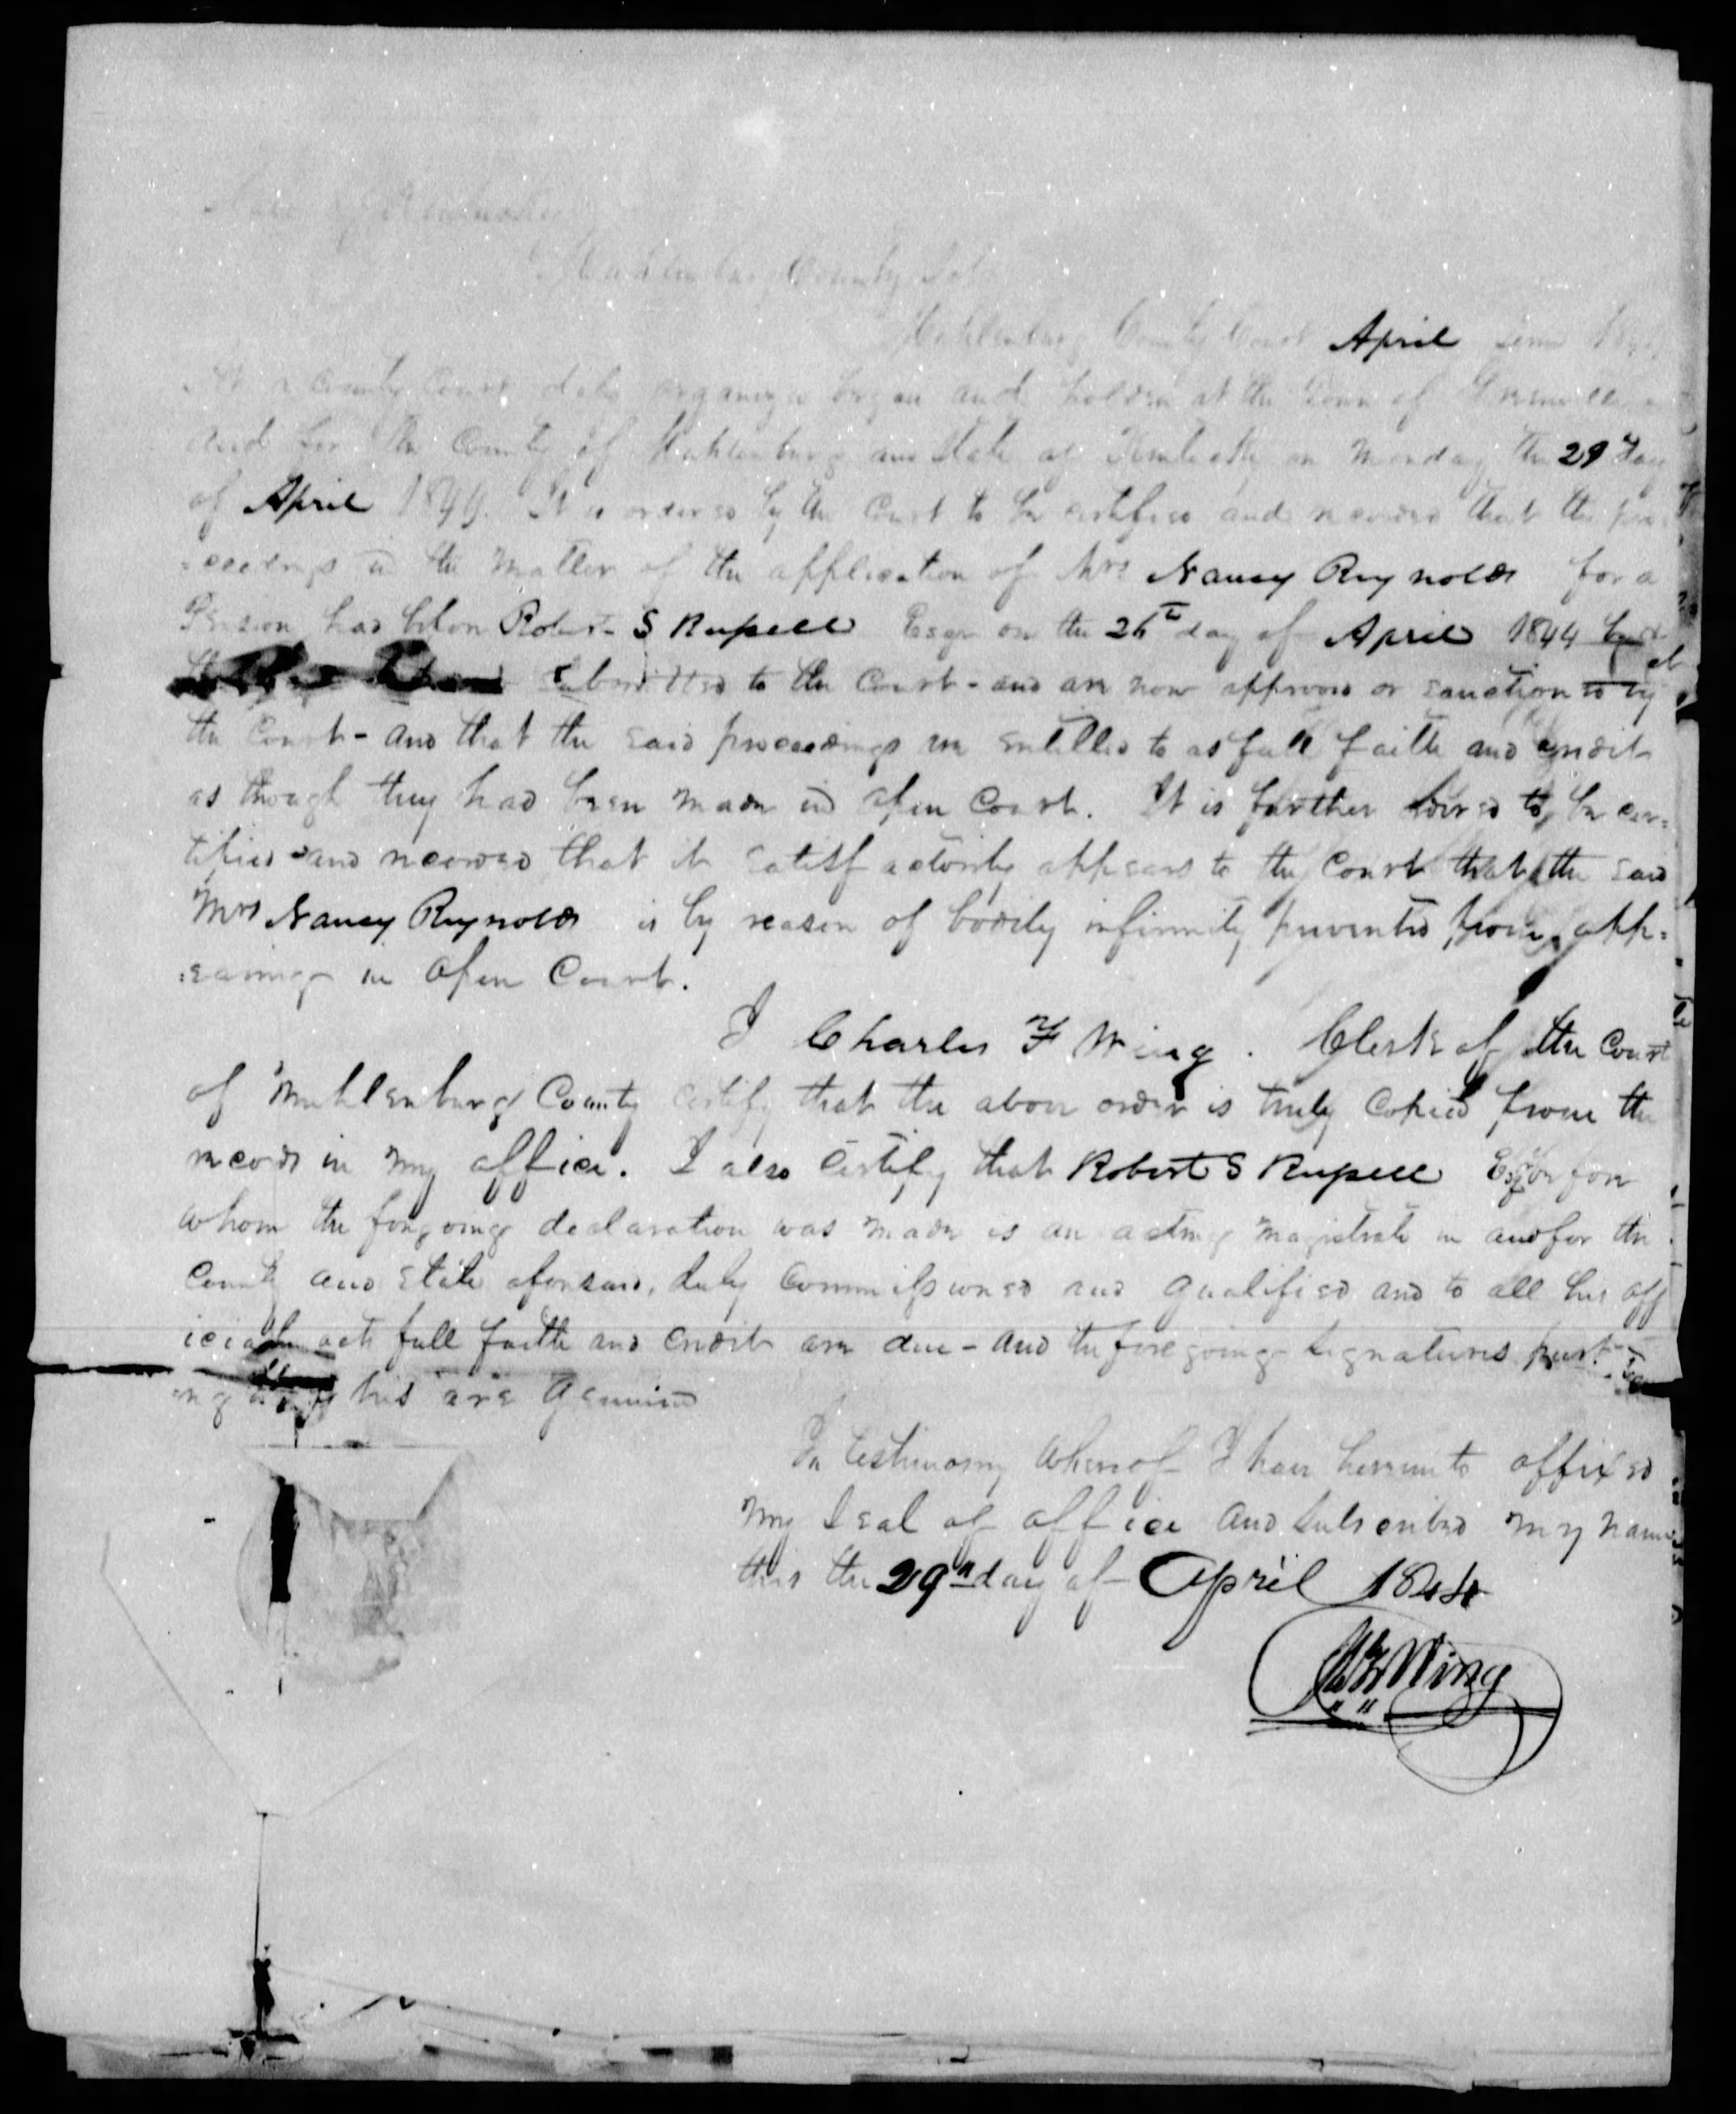 State of Kentucky
Muhlenburg County Sct
Muhlenburg County Court April Term 1844
At a County Court duly organized began and holden at the Town of Greenville
and for the County of Muhlenburg and State of Kentucky on Monday the 29th day
of April 1844. It is ordered by the Court to be certified and recorded that the pro
=ceedings in the matter of the application of Mrs Nancy Reynolds for a
Pension had before Robert S Russell Esqr on the 26th day of April 1844
Submitted to the Court - and are now approved or sanctioned by
the Court - and that the said proceedings are entitled to as full faith and credit
as though they had been made in open Court. It is further ordered to be cer=
tified and recorded that it satisfactorily appears to the Court that the said
Mrs Nancy Reynolds is by reason of bodily infirmity prevented from app=
=earing in open Court.
I Charles F Wing. Clerk of the Court
of Muhlenburg County certify that the above order is truly copied from the
record in my office. I also certify that Robert S Russell Esqr before
whom the foregoing declaration was made is an acting magistrate in and for the
County and State aforesaid, duly commissioned and qualified and to all his off
icial acts full faith and credit are due - and the foregoing signatures purt
ing his are genuine
In testimony whereof I have hereunto affixed
my seal of office and subscribed my name
this the 29th day of April 1844
Wing